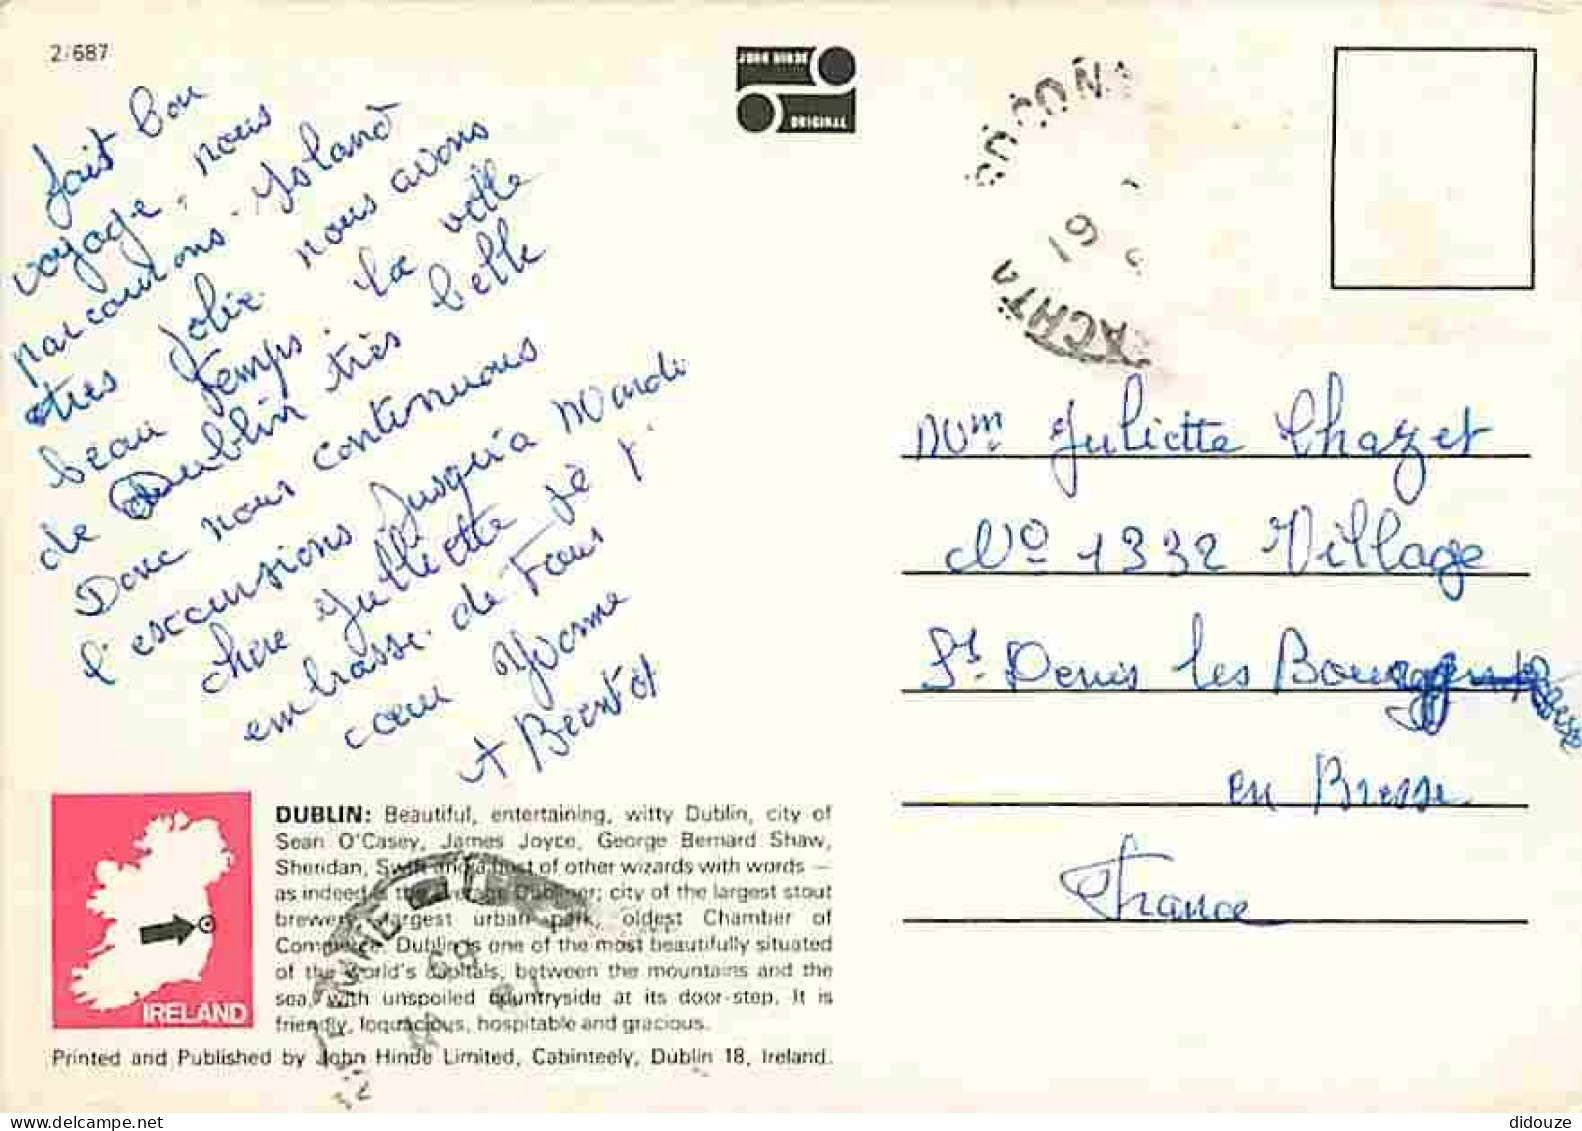 2/687
JOHN HINDE
ORIGINAL
fait bon
voyage, nous
parcourons Island
très jolie nous avons
beau temps. la ville
de Dublin très belle
Donc nous continuons
l'excursions jusqu'a Mardi
chère Julliette je t'
embrasse de Tous
cœur Yvonne
Mme Juliette Chazet
No 1332 Village
St Denis les Bourg
en Bresse
France
DUBLIN: Beautiful, entertaining, witty Dublin, city of
Sean O'Casey, James Joyce, George Bernard Shaw,
Sheridan, Swift and a host of other wizards with words —
as indeed is the average Dubliner; city of the largest stout
brewery, largest urban park, oldest Chamber of
Commerce. Dublin is one of the most beautifully situated
of the world's capitals, between the mountains and the
sea, with unspoiled countryside at its door-step. It is
friendly, loquacious, hospitable and gracious.
IRELAND
Printed and Published by John Hinde Limited, Cabinteely, Dublin 18, Ireland.
didouze